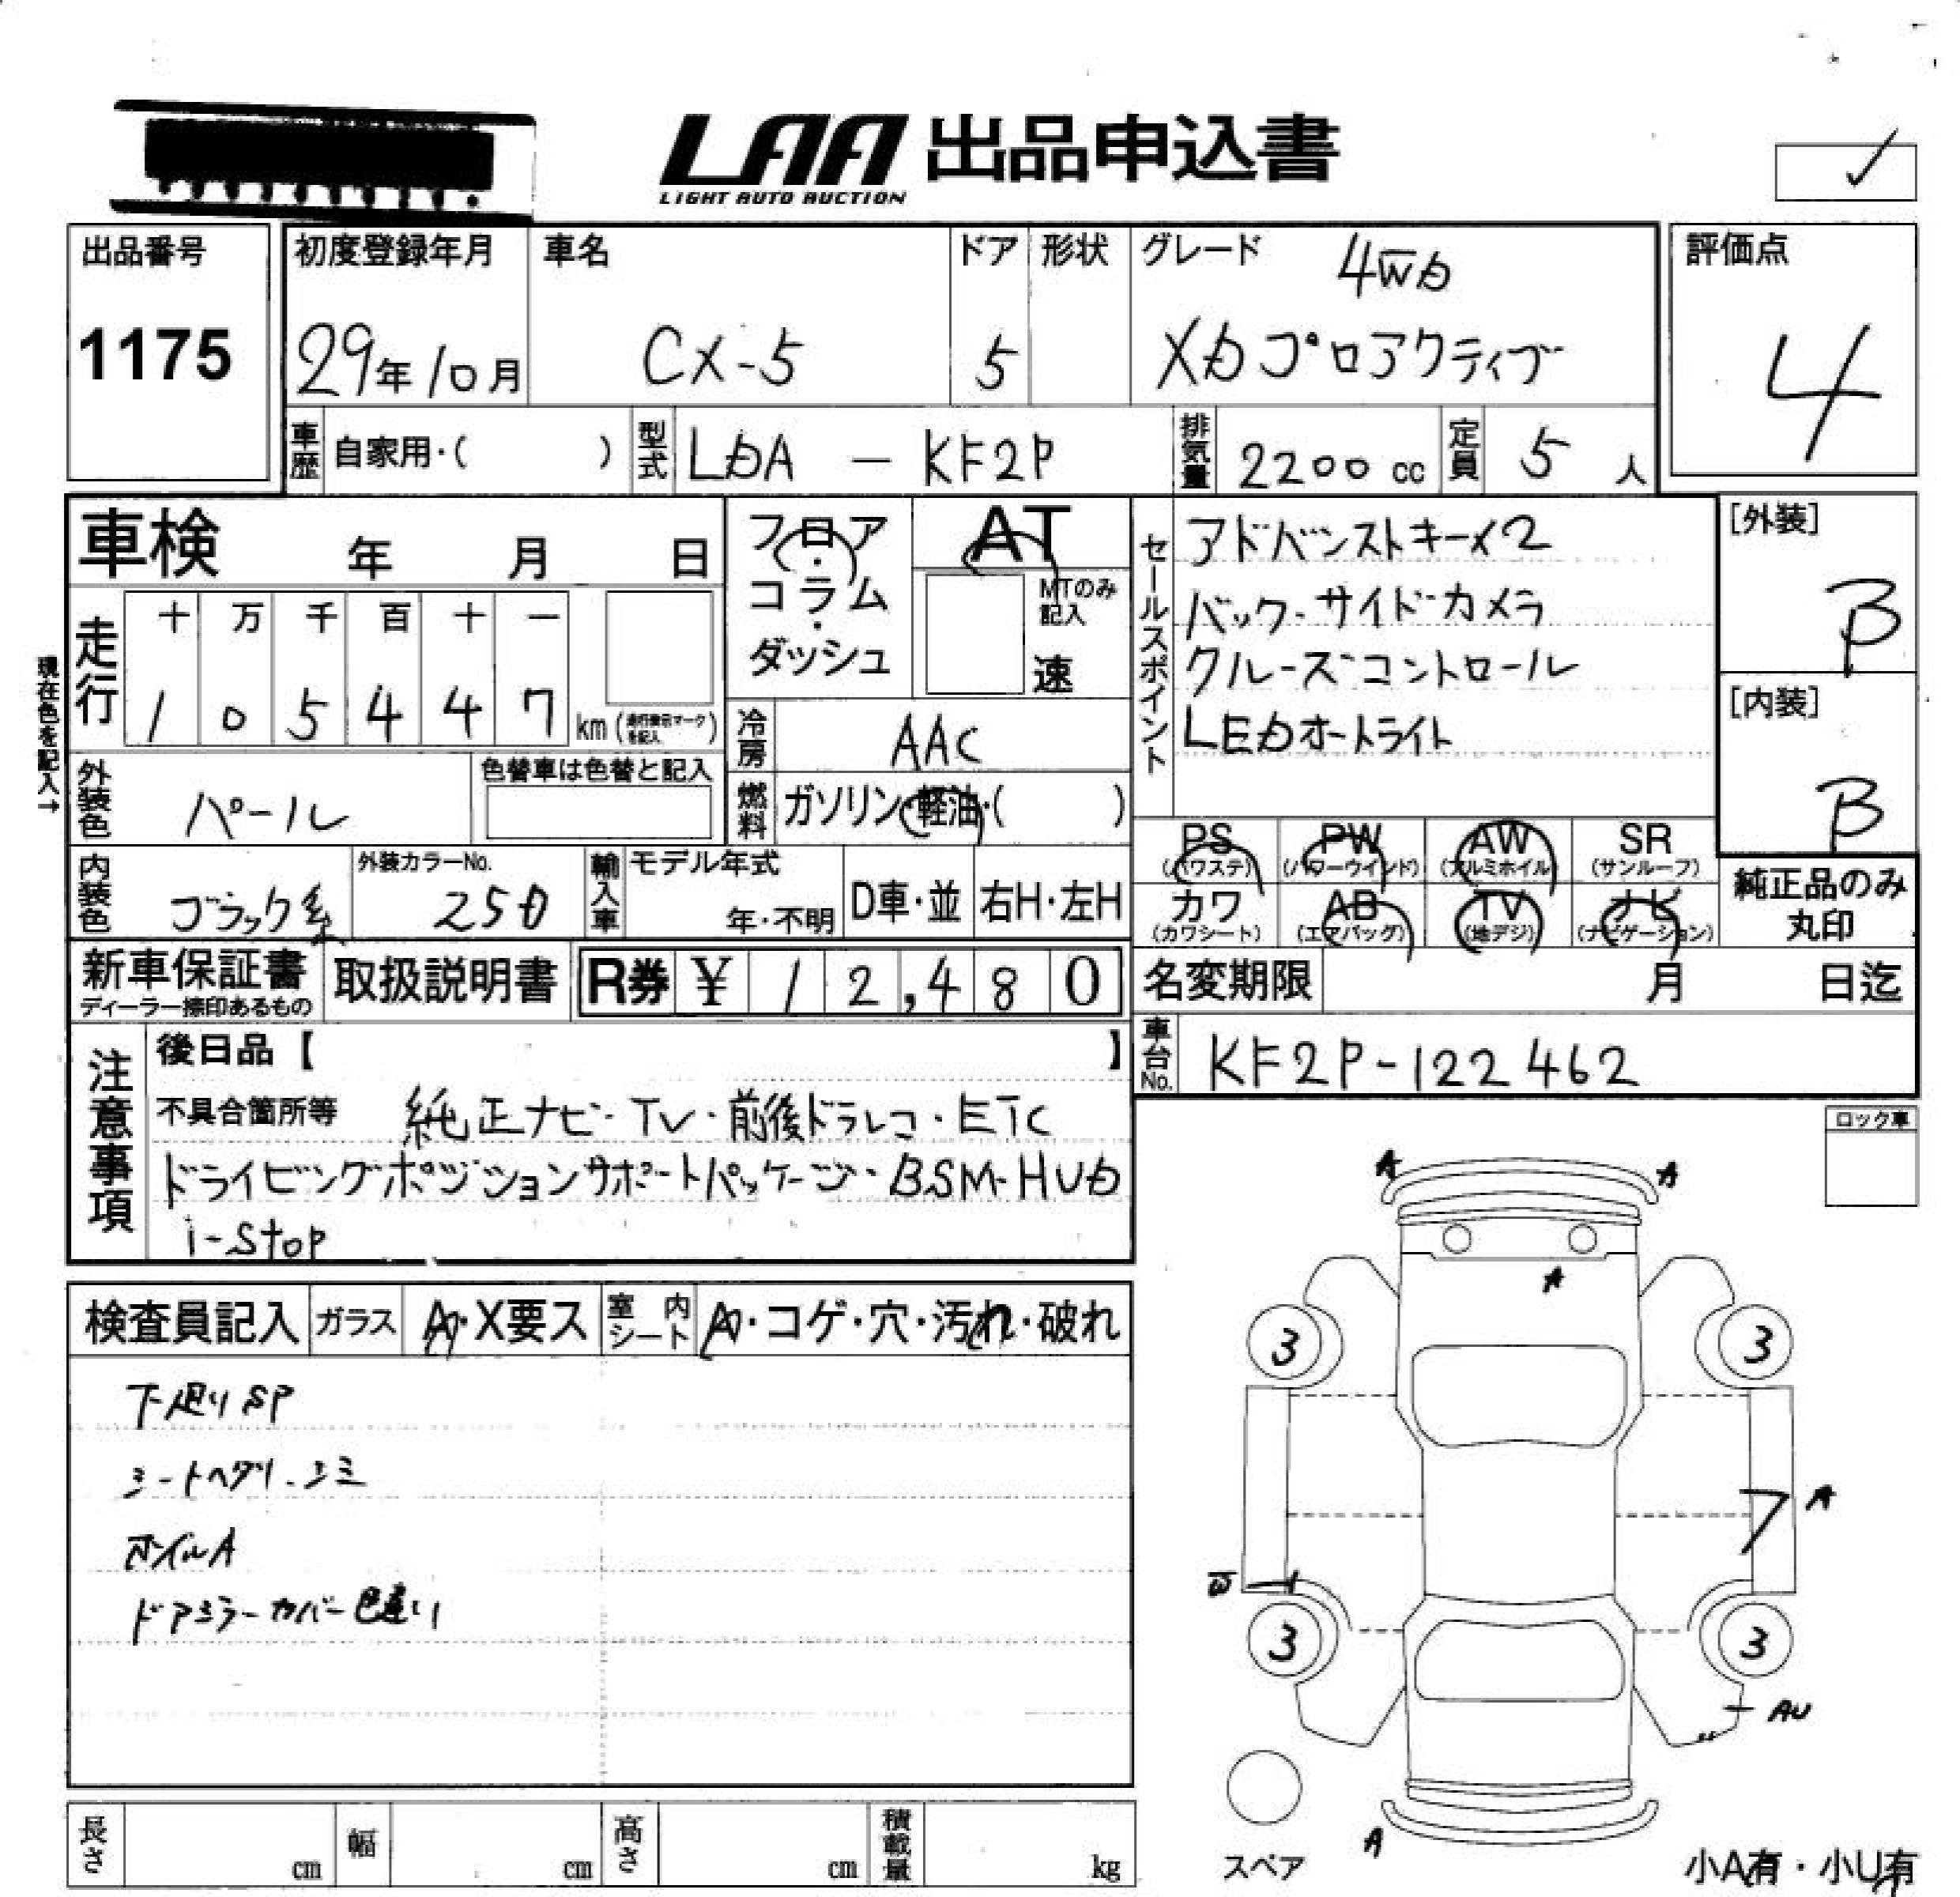 LAA 出品申込書
LIGHT AUTO AUCTION
出品番号
1175
初度登録年月
29年10月
車名
CX-5
ドア
5
形状
グレード 4WD
XDプロアクティブ
評価点
4
車歴 自家用・( )
型式 LDA - KF2P
排気量 2200 cc
定員 5 人
車検 年 月 日
走行
十 万 千 百 十 一
1 0 5 4 4 7 km (走行表示マークを記入)
現在色を記入→
フロア・コラム・ダッシュ
AT
MTのみ記入
速
冷房 AAC
燃料 ガソリン・軽油・( )
セールスポイント
アドバンストキー×2
バック・サイドカメラ
クルーズコントロール
LEDオートライト
[外装]
B
[内装]
B
外装色 パール
色替車は色替と記入
内装色 ブラック系
外装カラーNo.
25D
輸入車 モデル年式
年・不明
D車・並
右H・左H
PS (パワステ) PW (パワーウインド) AW (アルミホイル) SR (サンルーフ)
カワ (カワシート) AB (エアバッグ) TV (地デジ) ナビ (ナビゲーション)
純正品のみ
丸印
新車保証書
ディーラー捺印あるもの
取扱説明書
R券 ¥ 12,480
名変期限 月 日迄
車台No. KF2P-122462
注意事項
後日品【 】
不具合箇所等 純正ナビ・TV・前後ドラレコ・ETC
ドライビングポジションサポートパッケージ・BSM・HUD
i-stop
ロック車
検査員記入 ガラス A・X要ス 室内シート A・コゲ・穴・汚れ・破れ
下廻りSP
シートヘタリ・シミ
ホイルA
ドアミラーカバー色違い
A A
A
3 3
A
W
3 3
AU
A
スペア
小A有・小U有
長さ cm 幅 cm 高さ cm 積載量 kg